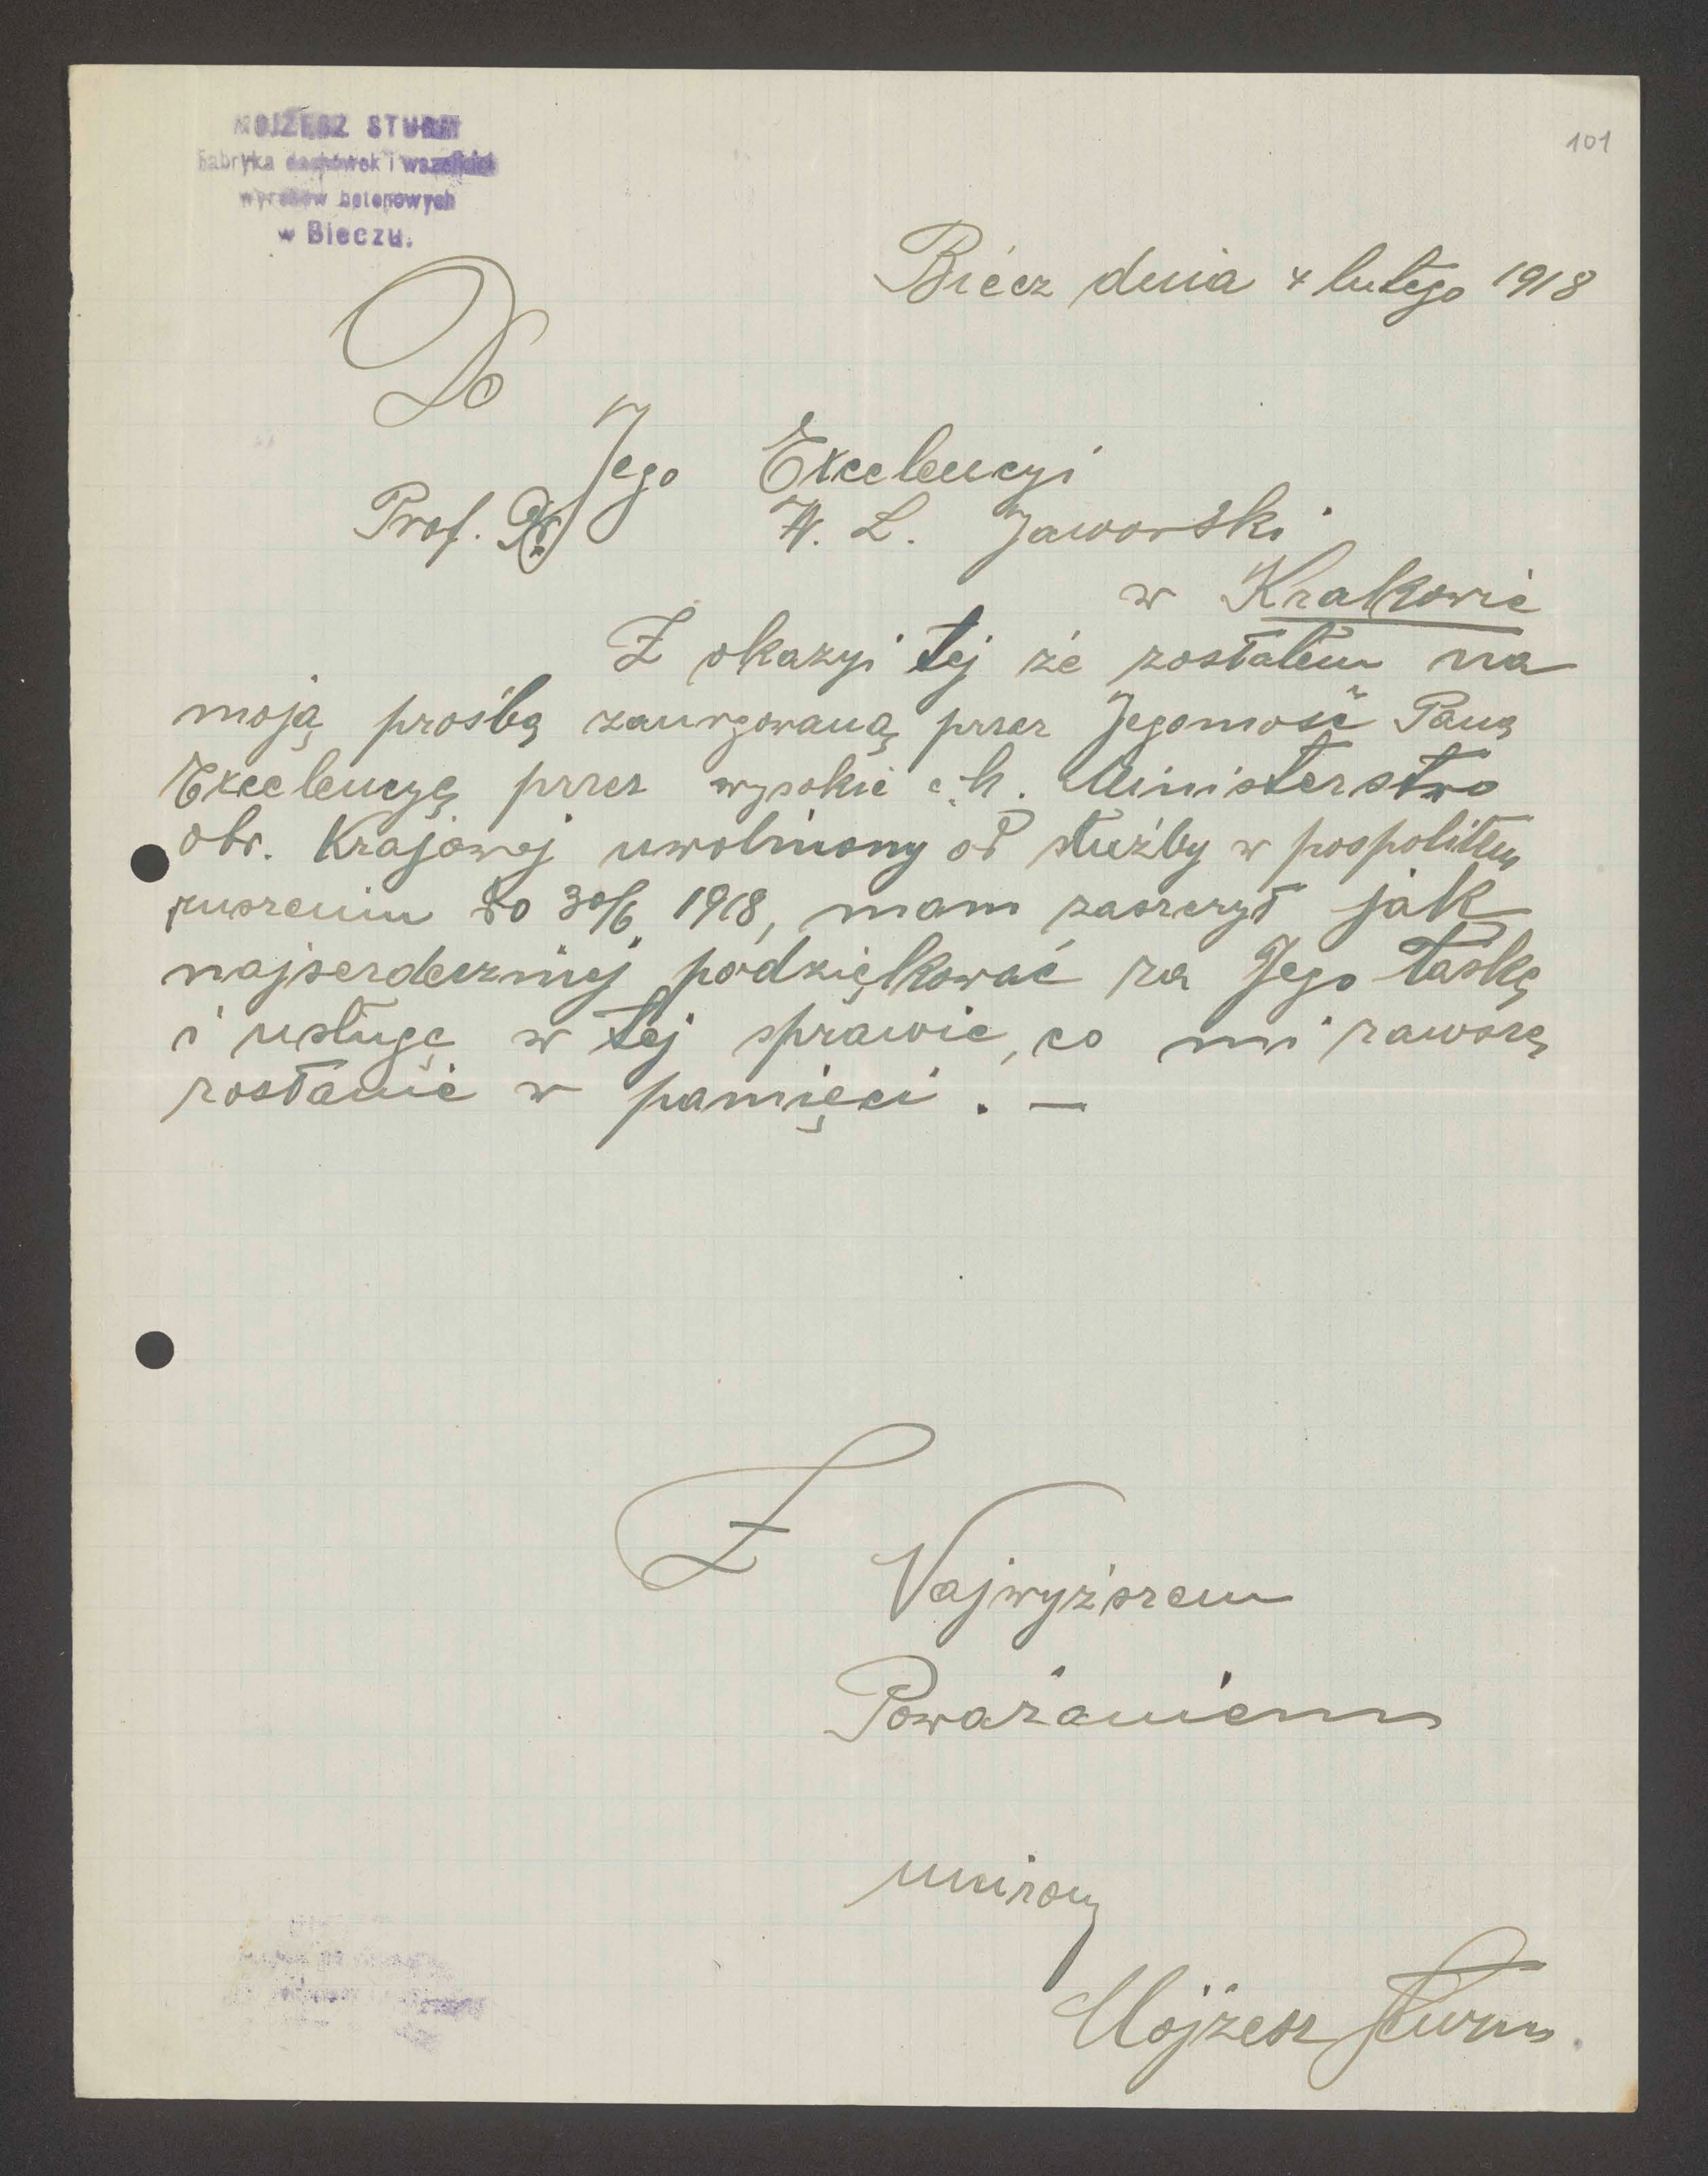 MOJŻESZ STURM
Fabryka dachówek i wszelkich
wyrobów betonowych
w Bieczu.
101
Biecz dnia 4 lutego 1918
Do
Jego Excelencyi
Prof. Dr W. L. Jaworski
w Krakowie
Z okazyi tej że zostałem na
moją prośbą zaurgowaną przez Jegomość Pana
Excelencyę przez wysokie c. k. Ministerstwo
obr. Krajowej uwolniony od służby w pospolitem
ruszeniu do 30/6 1918, mam zaszczyt jak
najserdeczniej podziękować za Jego łaskę
i usługę w tej sprawie, co mi zawsze
zostanie w pamięci. —
Z Najwyższem
Poważaniem
uniżony
Mojżesz Sturm